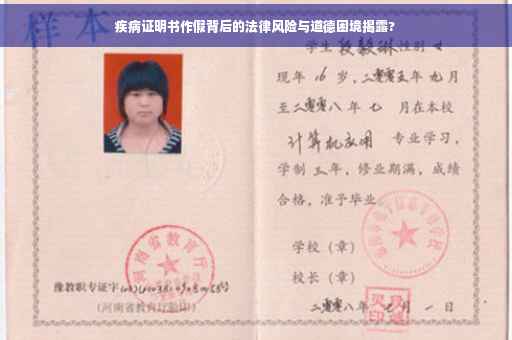 疾病证明书作假背后的法律风险与道德困境揭露?
样本
学生段毅琳性别女
现年16岁，二零零五年九月
至二零零八年七月在本校
计算机应用专业学习，
学制三年，修业期满，成绩
合格，准予毕业。
学校（章）
校长（章）
二零零八年七月一日
河南省教育厅
豫教职专证字
(河南省教育厅验印)